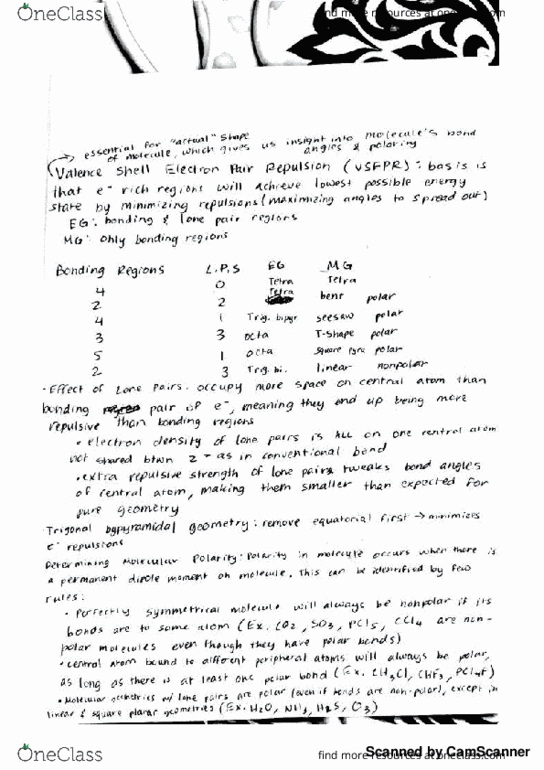 OneClass
find more resources at oneclass.com
essential for "actual" shape
of molecule, which gives us insight into molecule's bond
angles & polarity
Valence Shell Electron Pair Repulsion (VSEPR): basis is
that e- rich regions will achieve lowest possible energy
state by minimizing repulsions (maximizing angles to spread out)
EG: bonding & lone pair regions
MG: only bonding regions
Bonding Regions L.P.S EG MG
4 0 Tetra Tetra
2 2 Tetra bent polar
4 1 Trig. bipyr seesaw polar
3 3 octa T-shape polar
5 1 octa square pyr polar
2 3 Trig. bi. linear nonpolar
• Effect of Lone Pairs: occupy more space on central atom than
bonding pair of e-, meaning they end up being more
repulsive than bonding regions
• electron density of lone pairs is ALL on one central atom
not shared btwn 2 - as in conventional bond
• extra repulsive strength of lone pairs tweaks bond angles
of central atom, making them smaller than expected for
pure geometry
Trigonal bypyramidal geometry: remove equatorial first → minimizes
e- repulsions
Determining Molecular Polarity: Polarity in molecule occurs when there is
a permanent dipole moment on molecule. This can be identified by few
rules:
• Perfectly symmetrical molecule will always be nonpolar if its
bonds are to same atom (Ex. CO2, SO3, PCl5, CCl4 are non-
polar molecules even though they have polar bonds)
• central atom bound to different peripheral atoms will always be polar,
as long as there is at least one polar bond (Ex. CH3Cl, CHF3, PCl4F)
• Molecular geometries w/ lone pairs are polar (even if bonds are non-polar), except in
linear & square planar geometries (Ex. H2O, NH3, H2S, O3)
OneClass
find more resources at oneclass.com
Scanned by CamScanner